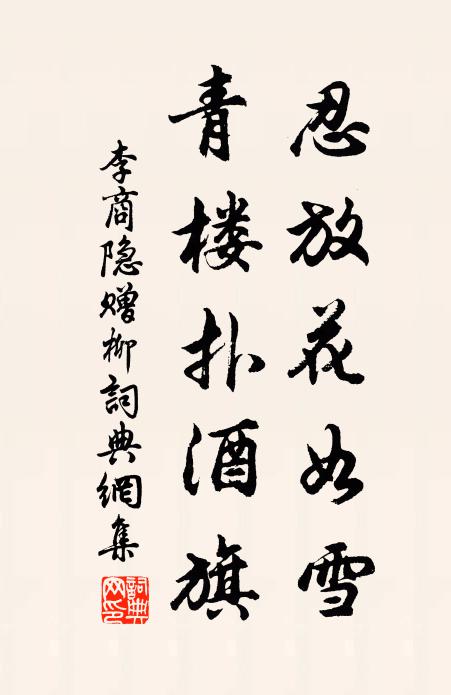 忍放花如雪
青楼扑酒旗
李商隐赠柳詞典網集
詞典
网印